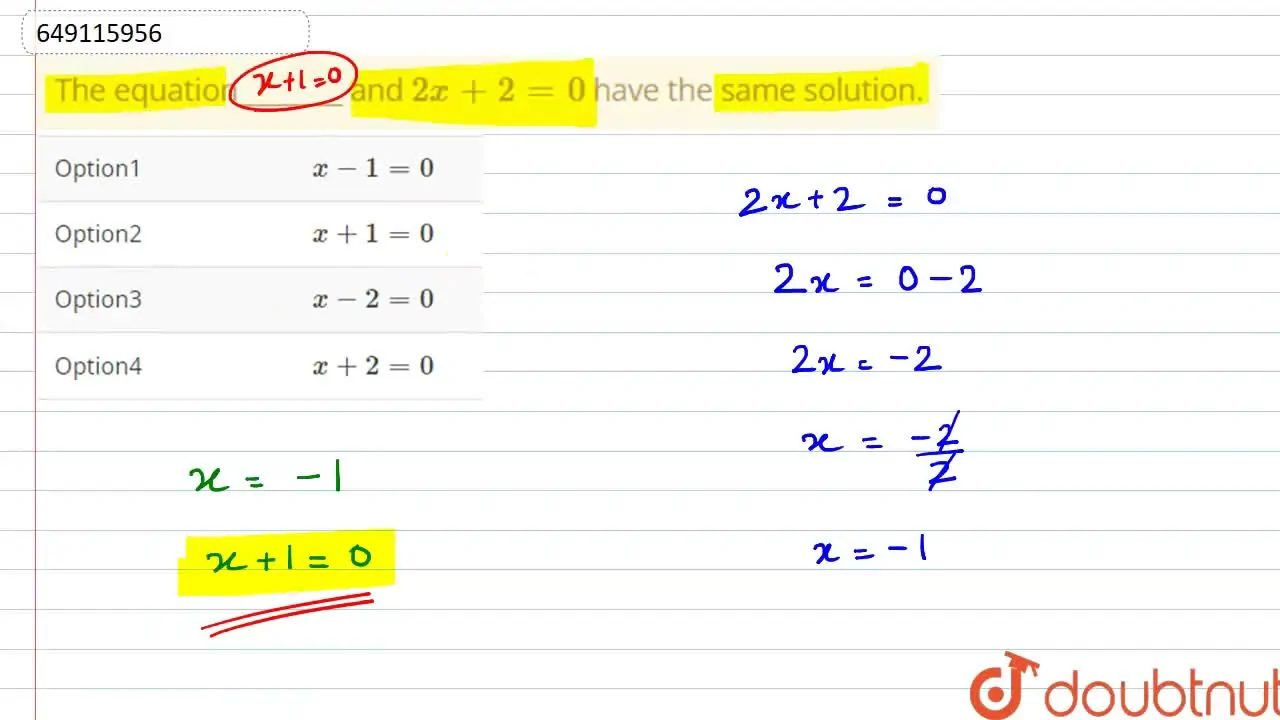 649115956
The equation x+1=0 and 2x + 2 = 0 have the same solution.
Option1 x − 1 = 0
Option2 x + 1 = 0
Option3 x − 2 = 0
Option4 x + 2 = 0
2x+2 = 0
2x = 0-2
2x = -2
x = -2/2
x = -1
x = -1
x+1 = 0
doubtnut